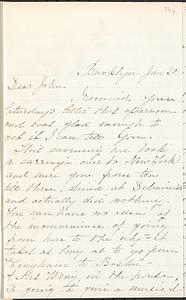 Brooklyn Jan 20
Dear John,
I received your
Saturday's letter this afternoon
and was glad enough to
get it I can tell you.
This morning we took
a carriage over to New York
and were gone from ten
till three, dined at Delmonico's
and actually did nothing.
You can have no idea of
the inconvenience of going
from here to the city – it
takes as long as to go from
to Boston –
in the house,
is going to give a musical